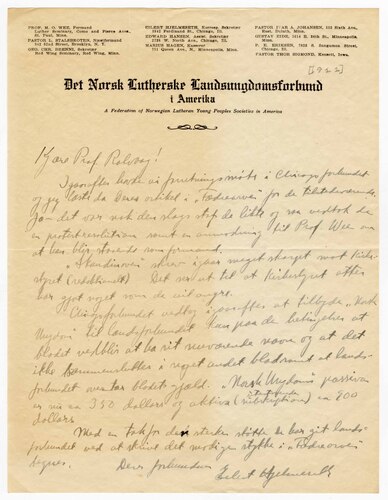 PROF. M. O. WEE, Formand
Luther Seminary, Como and Pierce Aves.
St. Paul, Minn.
PASTOR L. STALHEIOTEN, Næstformand
542 62nd Street, Brooklyn, N. Y.
GEO. CHR. BREDESEN, Sekretær
Red Wing Seminary, Red Wing, Minn.
EILERT HJELMSETH, Korresp. Sekretær
Ferdinand St., Chicago, Ill.
EDWARD HANSEN, Assist. Sekretær
N. W. North Ave., Chicago, Ill.
MARIUS HAGEN, Kasserer
Queen Ave., N., Minneapolis, Minn.
PASTOR IVAR A. JOHANSEN, Ave.
East, Duluth, Minn.
GUSTAV EIDE, E. 24th St., Minneapolis,
Minn.
P. E. ERIKSEN, S. Sangamon Street,
Chicago, Ill.
PASTOR THOR SIGMOND, Kensett, Iowa.
[1922]
Det Norsk Lutherske Landsungdomsforbund
i Amerika
A Federation of Norwegian Lutheran Young Peoples Societies in America
Kjære Prof. Rolvaag!
Igaaraftes havde vi forretningsmøte i Chicagoforbundet
og jeg læste da Deres artikel i for de tilstedeværende.
Jam det var nok den slags stof de likte og saa vedtok de
en protestresolution samt en anmodning til Prof Wee om
at han blir staaende som formand.
"Skandinaven" skrev igaar meget skarpt mot Kirke-
styret (redaktionelt) Det ser ut til at Kirkestyret atter
har gjort noget som de vil angre.
Chicagoforbundet vedtog igaaraftes at tilbyde "Norsk
Ungdom" til Landsforbundet kun paa de betingelser at
bladet vedblir at ha sit nuværende navn og at det
ikke sammensluttes i noget andet blad samt at lands-
forbundet overtar bladets gjæld. "Norsk Ungdom's" passiver
er nu ca 350 dollars og aktiva (subskription) ca 800
dollars
Med en tak for den sterke støtte De har git lands-
forbundet ved at skrive det modige stykke i
tegnes.
Deres forbundne
Eilert Hjelmseth